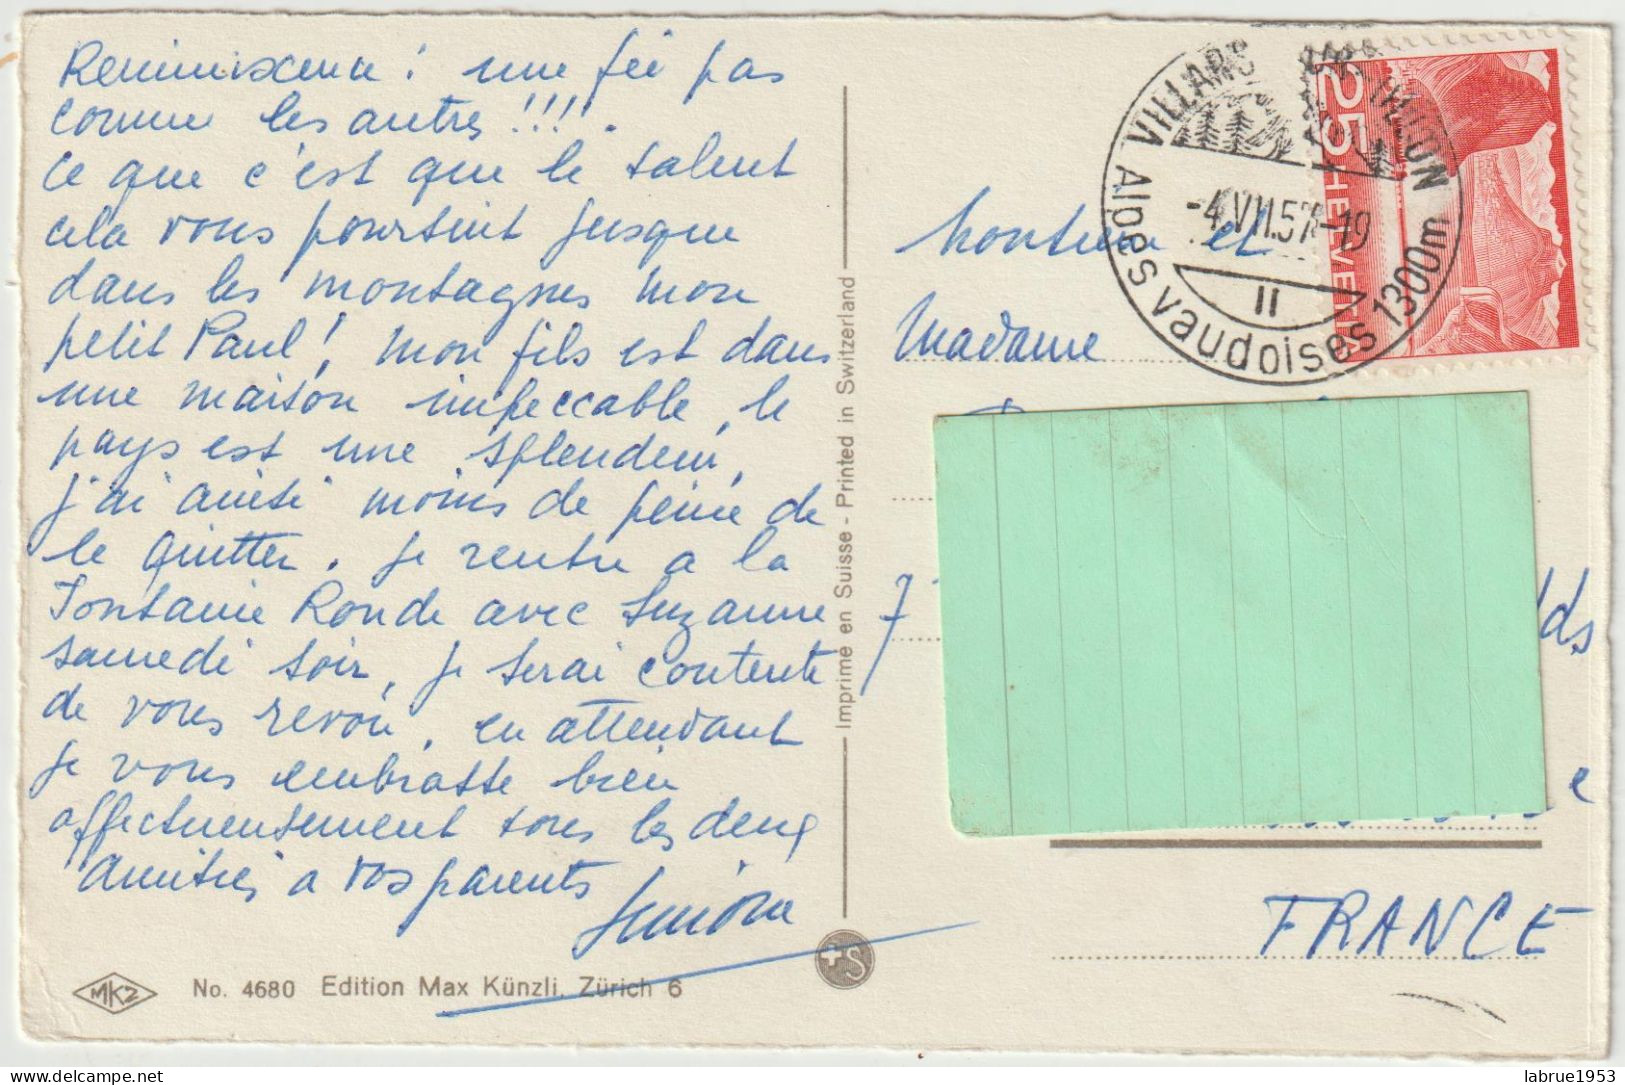 Reminiscence : une fée pas
comme les autres !!!!
ce que c'est que le talent
cela vous poursuit jusque
dans les montagnes mon
petit Paul ! mon fils est dans
une maison impeccable, le
pays est une splendeur,
j'ai ainsi moins de peine de
le quitter. je rentre a la
Fontaine Ronde avec Suzanne
samedi soir, je serai contente
de vous revoir, en attendant
je vous embrasse bien
affectueusement tous les deux
amitiés a vos parents
Simone
MKZ
No. 4680 Edition Max Künzli, Zürich 6
Imprimé en Suisse - Printed in Switzerland
+S
VILLARS CHESIÈRES
Alpes vaudoises 1300m
-4.VII.57-19
II
25
HELVETIA
Monsieur et
Madame
7
lds
e
FRANCE
Delcampe.net
labrue1953